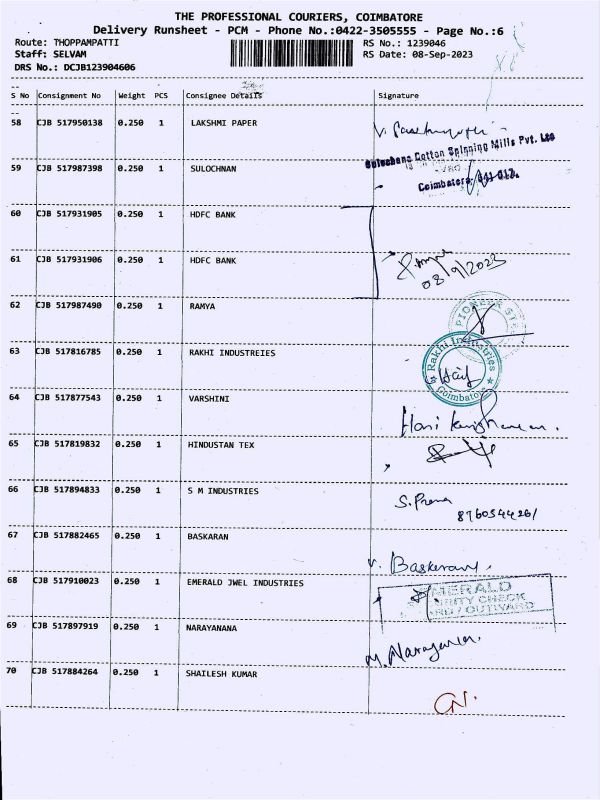 THE PROFESSIONAL COURIERS, COIMBATORE
Delivery Runsheet - PCM - Phone No.:0422-3505555 - Page No.:6
Route: THOPPAMPATTI RS No.: 1239046
Staff: SELVAM RS Date: 08-Sep-2023
DRS No.: DCJB123904606
--
S No Consignment No Weight PCS Consignee Details Signature
--
58 CJB 517950138 0.250 1 LAKSHMI PAPER
Cotton Spinning Mills Pvt. Ltd
59 CJB 517987398 0.250 1 SULOCHNAN
Coimbatore
60 CJB 517931905 0.250 1 HDFC BANK
61 CJB 517931906 0.250 1 HDFC BANK
08/9/2023
62 CJB 517987490 0.250 1 RAMYA
PIONEER
63 CJB 517816785 0.250 1 RAKHI INDUSTREIES
Rakhi Industries
Coimbatore
64 CJB 517877543 0.250 1 VARSHINI
Hari
65 CJB 517819832 0.250 1 HINDUSTAN TEX
66 CJB 517894833 0.250 1 S M INDUSTRIES
S. Prema
67 CJB 517882465 0.250 1 BASKARAN
V. Baskaran
68 CJB 517910023 0.250 1 EMERALD JWEL INDUSTRIES
EMERALD
CHECK
OUTWARD
69 CJB 517897919 0.250 1 NARAYANANA
M. Narayanan
70 CJB 517884264 0.250 1 SHAILESH KUMAR